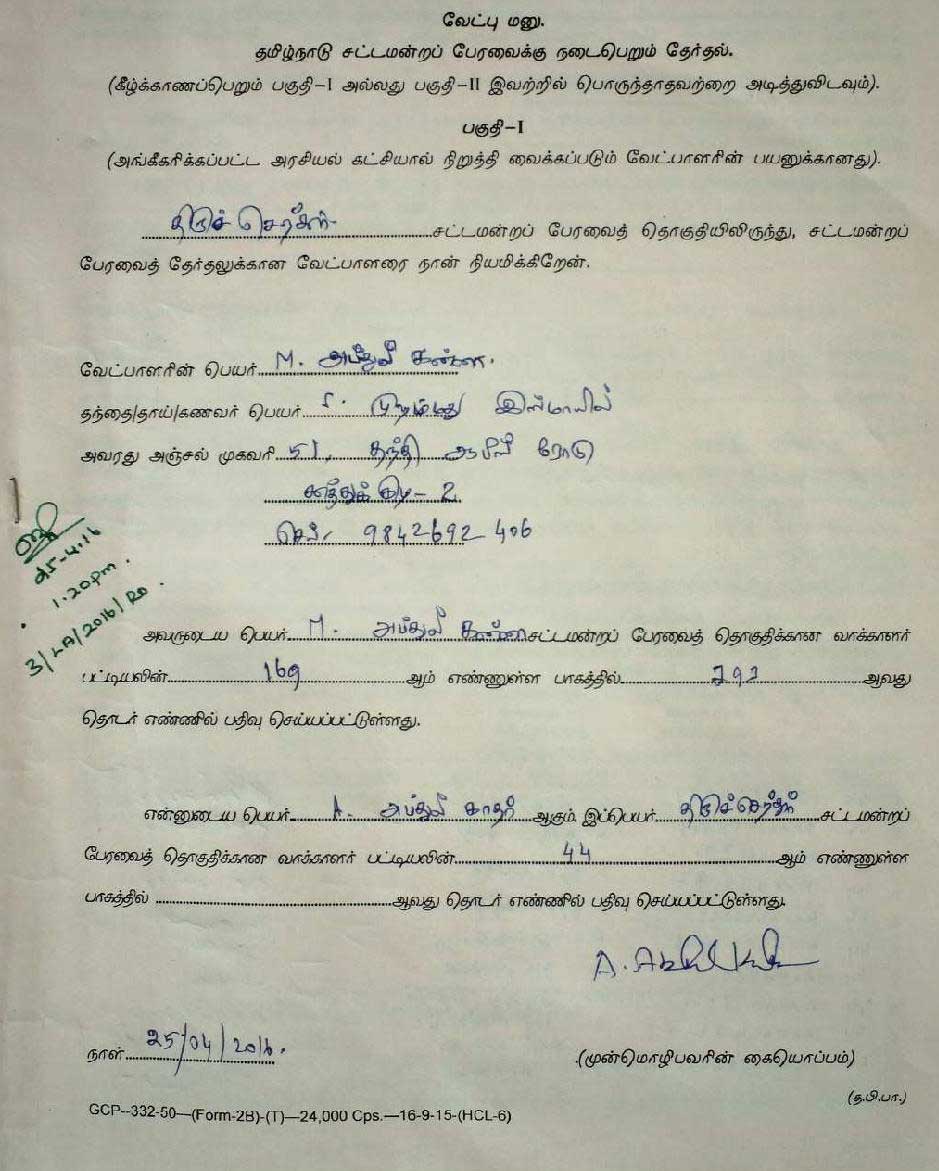 வேட்பு மனு.
தமிழ்நாடு சட்டமன்றப் பேரவைக்கு நடைபெறும் தேர்தல்.
(கீழ்க்காணப்பெறும் பகுதி-I அல்லது பகுதி-II இவற்றில் பொருந்தாதவற்றை அடித்துவிடவும்).
பகுதி-I
(அங்கீகரிக்கப்பட்ட அரசியல் கட்சியால் நிறுத்தி வைக்கப்படும் வேட்பாளரின் பயனுக்கானது).
திருச்செந்தூர் சட்டமன்றப் பேரவைத் தொகுதியிலிருந்து, சட்டமன்றப்
பேரவைத் தேர்தலுக்கான வேட்பாளரை நான் நியமிக்கிறேன்.
வேட்பாளரின் பெயர் M. அப்துல்
தந்தை/தாய்/கணவர் பெயர் முஹம்மது இஸ்மாயில்
அவரது அஞ்சல் முகவரி 51, தந்தி ஆபீஸ் ரோடு
தூத்துக்குடி - 2
செல். 9842692 406
25-4.16
1.20pm.
3/LA/2016/RO
அவருடைய பெயர் M. அப்துல் சட்டமன்றப் பேரவைத் தொகுதிக்கான வாக்காளர்
பட்டியலின் 169 ஆம் எண்ணுள்ள பாகத்தில் ஆவது
தொடர் எண்ணில் பதிவு செய்யப்பட்டுள்ளது.
என்னுடைய பெயர் A. அப்துல் காதர் ஆகும். இப்பெயர் திருச்செந்தூர் சட்டமன்றப்
பேரவைத் தொகுதிக்கான வாக்காளர் பட்டியலின் 44 ஆம் எண்ணுள்ள
பாகத்தில் ஆவது தொடர் எண்ணில் பதிவு செய்யப்பட்டுள்ளது.
நாள் 25/04/2016.
(முன்மொழிபவரின் கையொப்பம்)
(த.பி.பா.)
GCP--332-50—(Form-2B)-(T)—24,000 Cps.—16-9-15-(HCL-6)